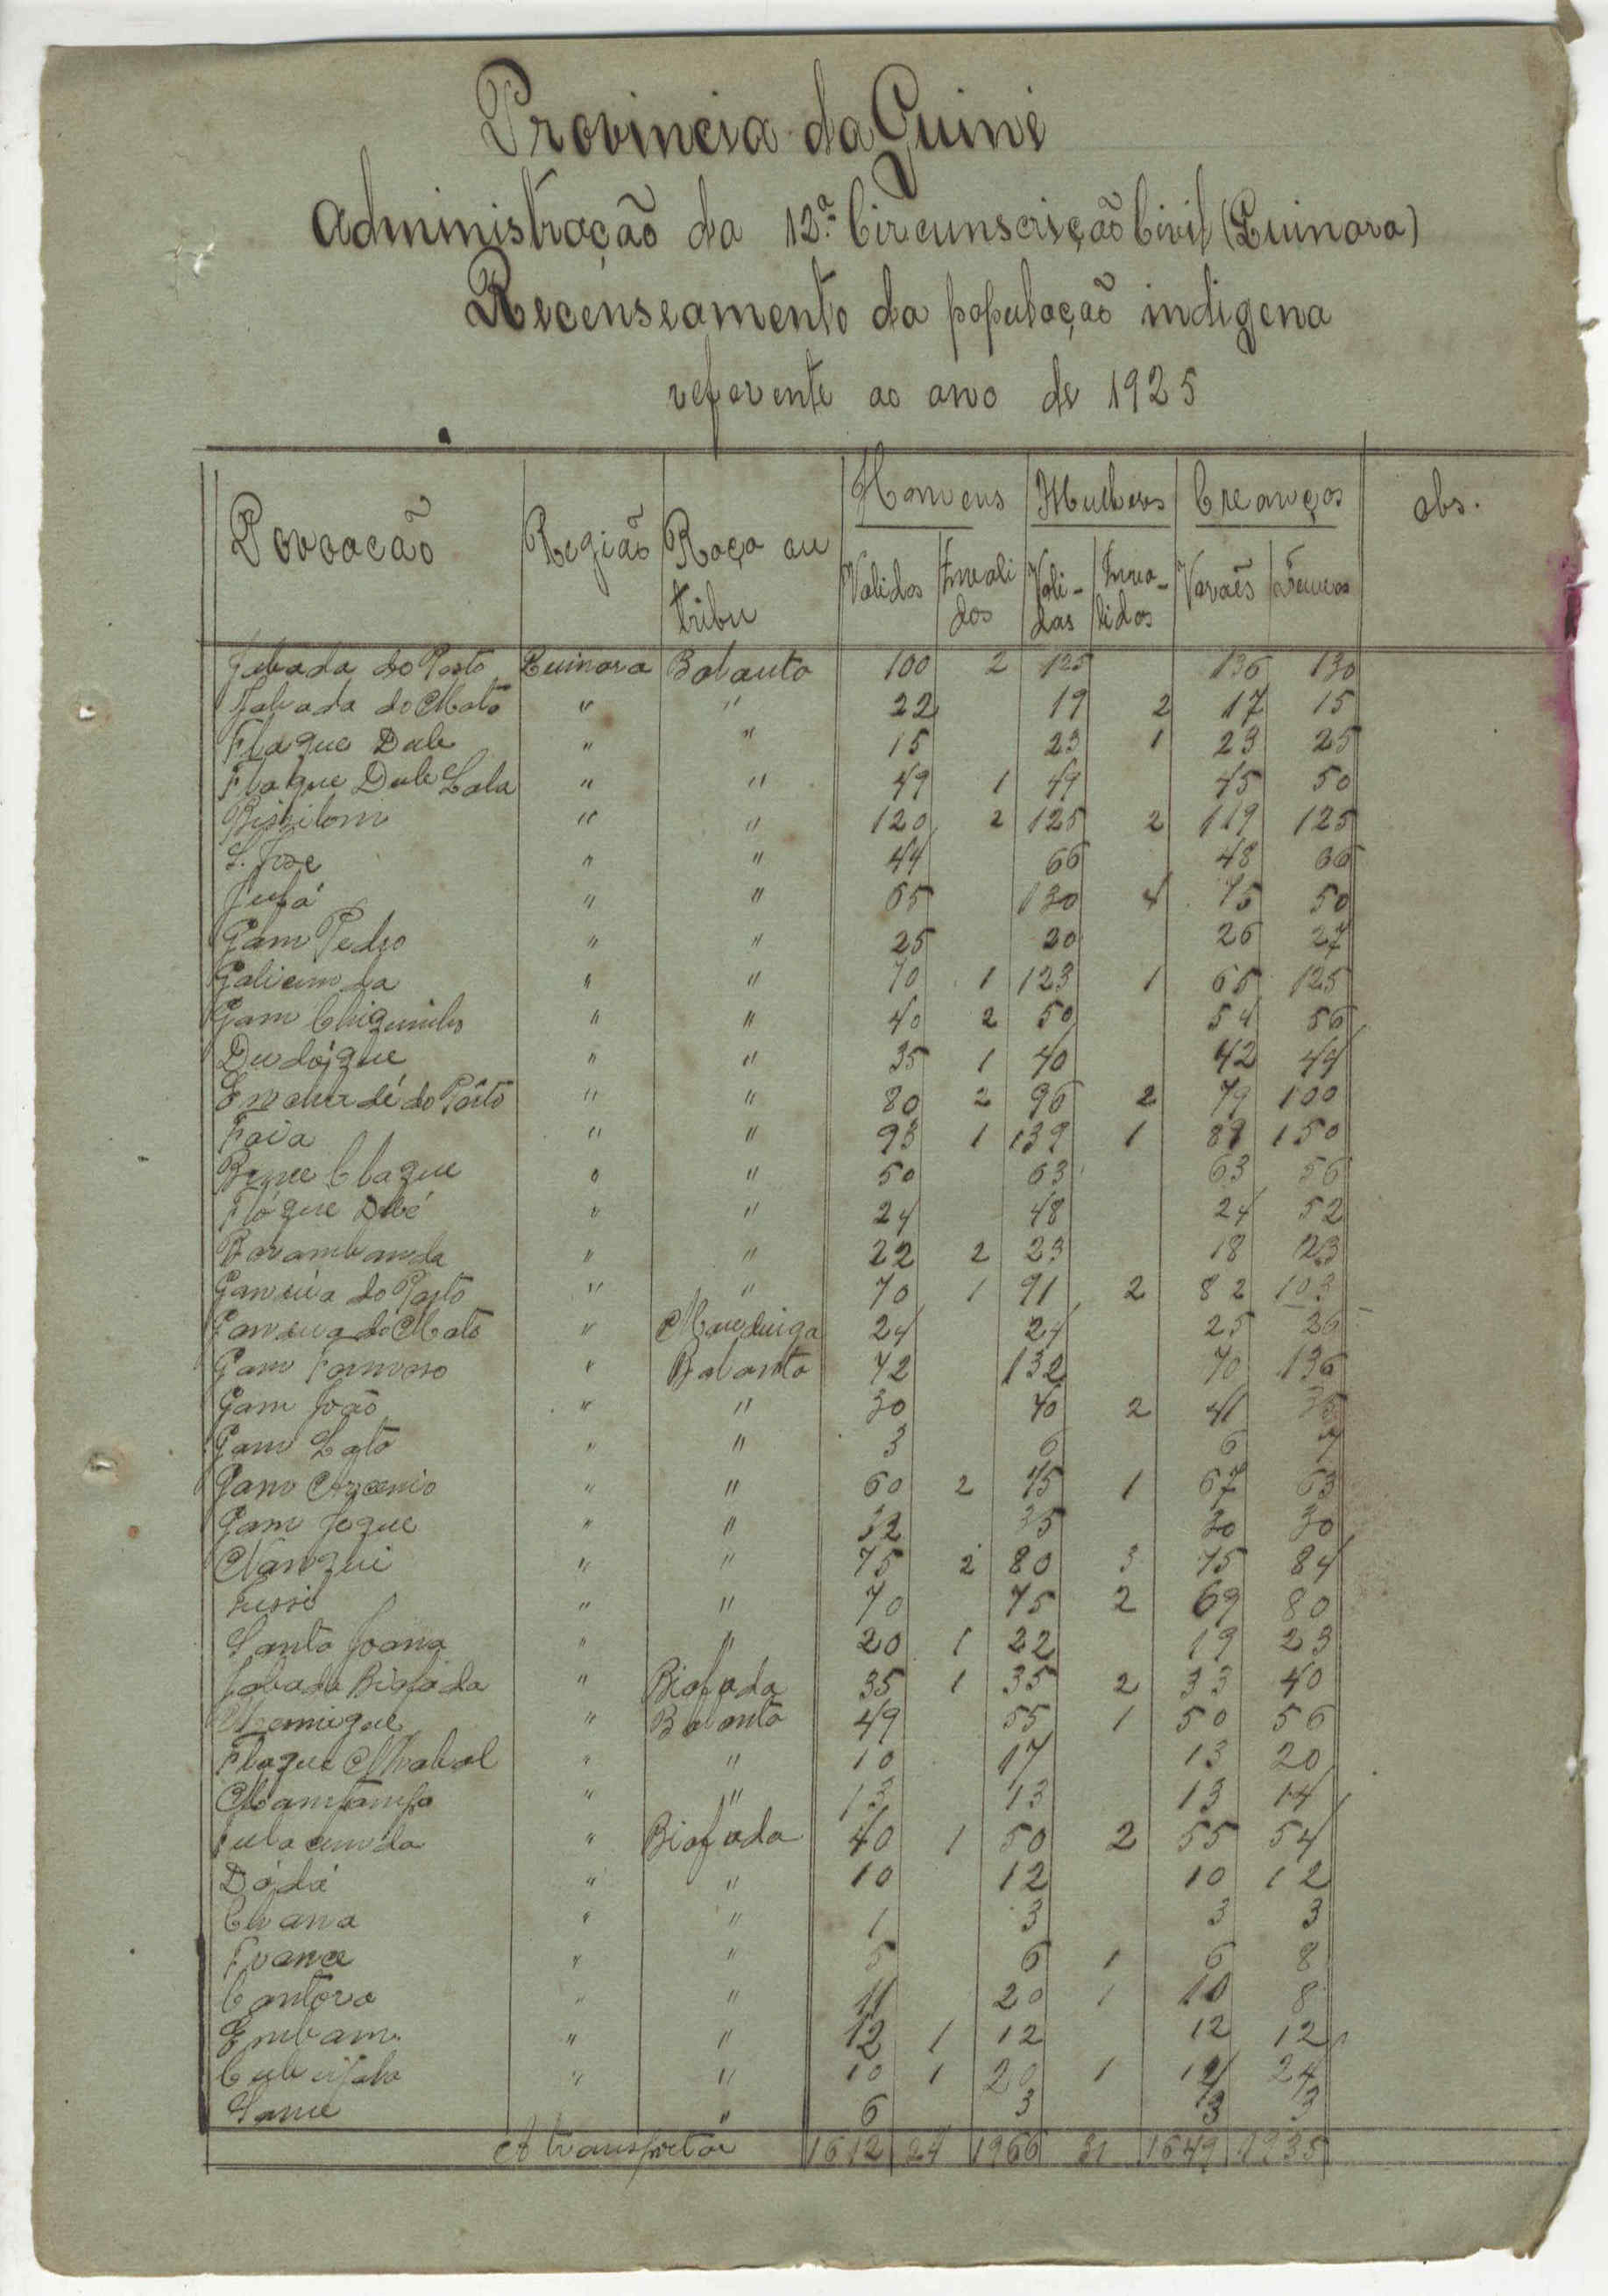 Provincia da Guiné
Administração da 12ª Circunscrição Civil (Quinara)
Recenseamento da população indigena
referente ao ano de 1925
Povoação Região Raça ou tribu Homens Mulheres Creanças obs.
Validos Invalidos Validas Invalidos Varaēs Femeas
Jabada do Porto Quinara Balanta 100 2 125 136 130
Jabada do Mato " " 22 19 2 17 15
Flaque Dule " " 15 23 1 23 25
Flaque Dule Lala " " 49 1 49 45 50
Bissilom " " 120 2 125 2 119 125
S. José " " 44 66 48 66
Jufá " " 65 130 4 75 50
Gam Pedro " " 25 20 26 27
Galicunda " " 70 1 123 1 65 125
Gam Chiquinho " " 40 2 50 54 56
Dudóque " " 35 1 40 42 49
Enchudé do Pôrto " " 80 2 96 2 79 100
Foia " " 93 1 139 1 89 150
Claque " " 50 63 63 56
Fláque Dubé " " 24 48 24 52
Barambanda " " 22 2 23 18 23
Gansúa do Porto " " 70 1 91 2 82 103
Gansua do Mato " Mandinga 24 24 25 26
Gam Formoso " Balanta 72 132 70 136
Gam João " " 30 40 2 41
Gam Lato " " 3 6 6 7
Gam Arcenio " " 60 2 75 1 67 63
Gam Joque " " 32 35 30 30
Nanqui " " 75 2 80 3 75 84
Fussi " " 70 75 2 69 80
Santa Joana " " 20 1 22 19 23
Jabada Biafada " Biafada 35 1 35 2 33 40
" Balanta 49 55 1 50 56
Flaque Mabal " " 10 17 13 20
" " 13 13 13 14
Fulacunda " Biafada 40 1 50 2 55 54
Dádá " " 10 12 10 12
Chana " " 1 3 3 3
" " 5 6 1 6 8
Cantora " " 11 20 1 10 8
Embam. " " 12 1 12 12 12
" " 10 1 20 1 14 24
Same " 6 3 3 3
A transportar 1612 24 1966 31 1649 1935